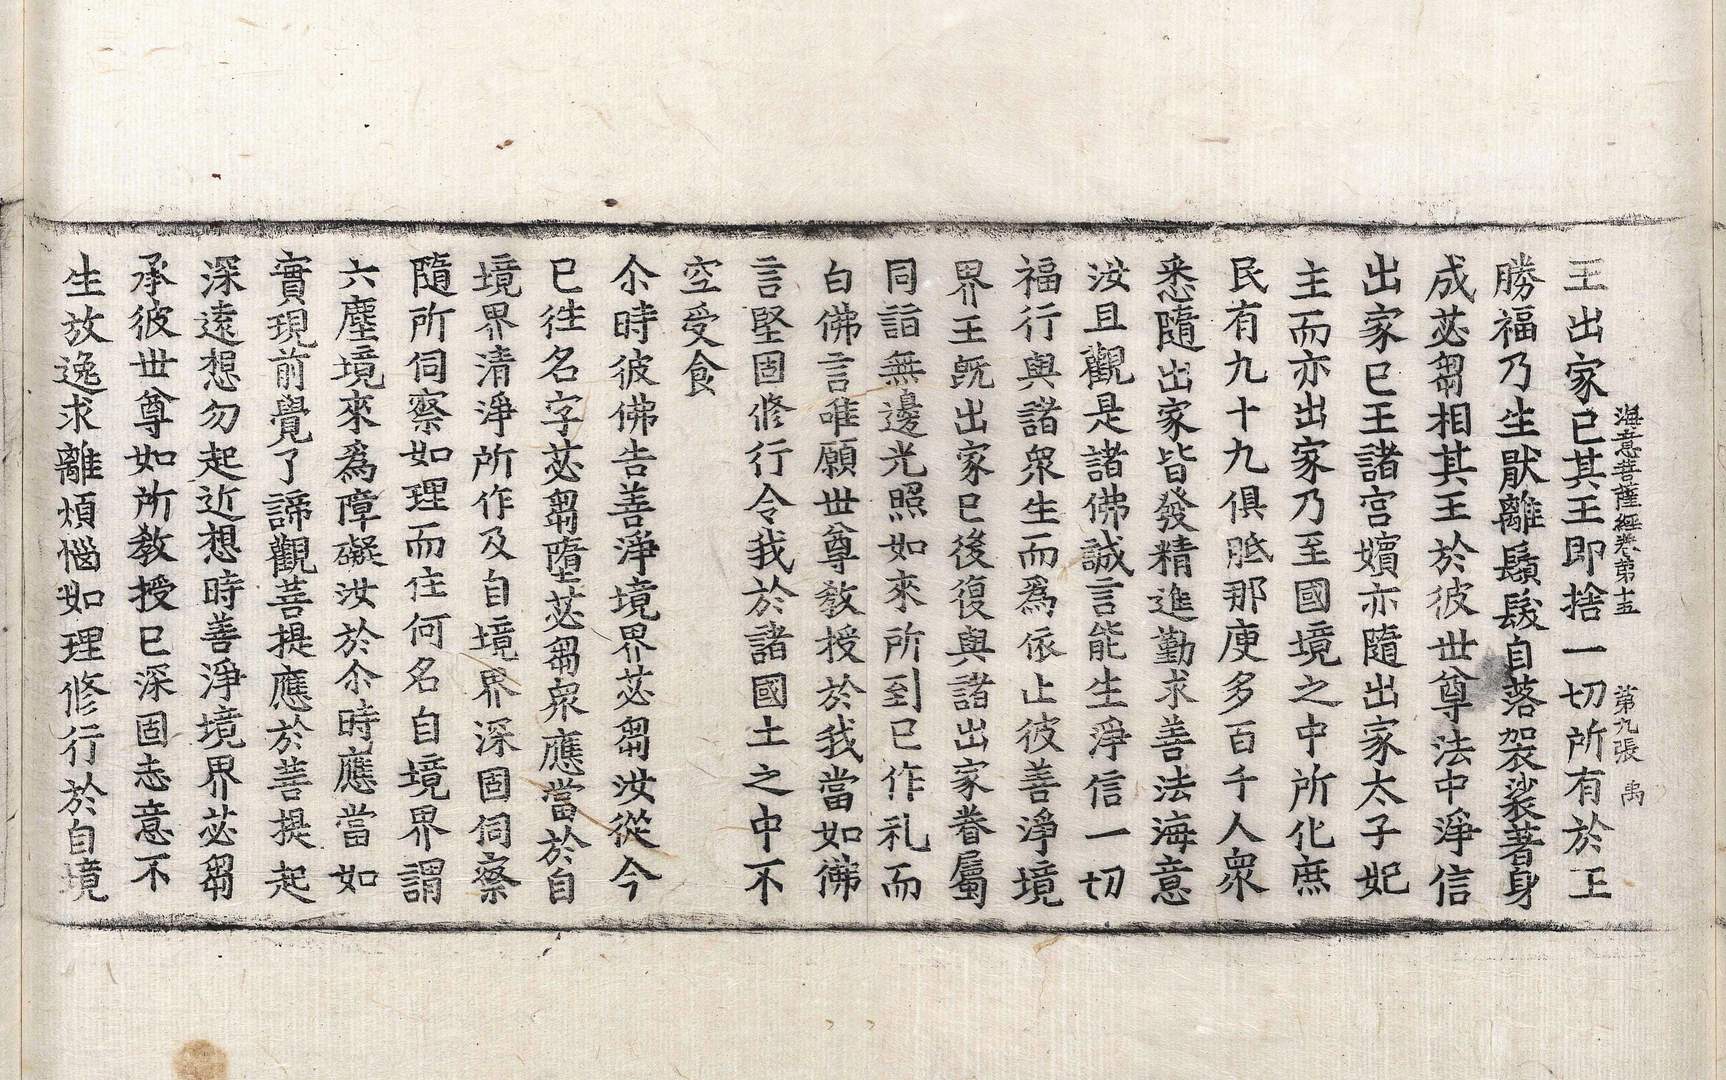 海意菩薩經卷第十五 第九張 禹
王出家已其王即捨一切所有於正
勝福乃生猒離鬚髮自落袈裟著身
成苾芻相其王於彼世尊法中淨信
出家已王諸宮嬪亦隨出家太子妃
主而亦出家乃至國境之中所化庶
民有九十九俱胝那庾多百千人衆
悉隨出家皆發精進勤求善法海意
汝且觀是諸佛誠言能生淨信一切
福行與諸衆生而爲依止彼善淨境
界王旣出家已後復與諸出家眷屬
同詣無邊光照如來所到已作礼而
白佛言唯願世尊教授於我當如佛
言堅固修行令我於諸國土之中不
空受食
尒時彼佛告善淨境界苾芻汝從今
已徃名字苾芻墮苾芻衆應當於自
境界清淨所作及自境界深固伺察
隨所伺察如理而住何名自境界謂
六塵境來爲障礙汝於尒時應當如
實現前覺了諦觀菩提應於菩提起
深遠想勿起近想時善淨境界苾芻
承彼世尊如所教授已深固志意不
生放逸求離煩惱如理修行於自境